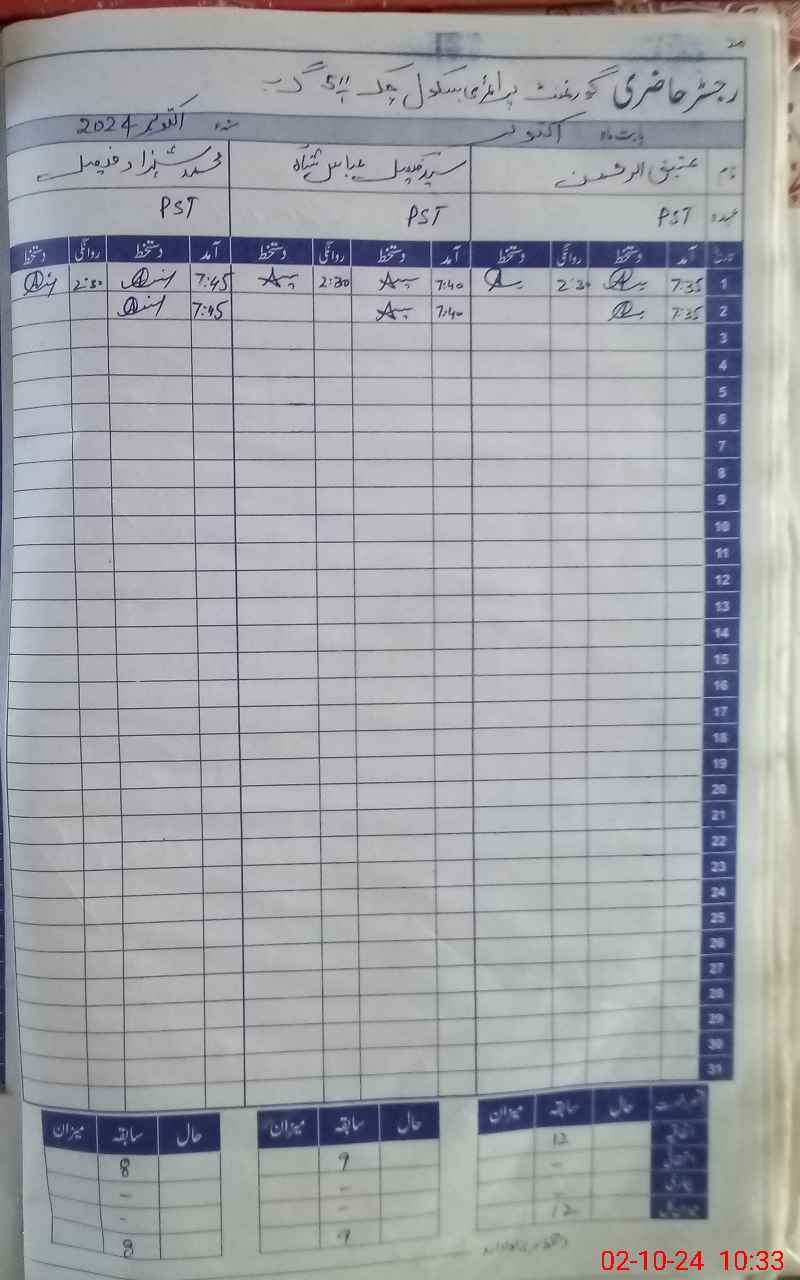 رجسٹر حاضری گورنمنٹ پرائمری سکول چک 511 گ ب
بابت ماہ اکتوبر سنہ اکتوبر 2024
نام عتیق الرحمن سید فیصل عباس شاہ محمد شہزاد فیصل
عہدہ PST PST PST
تاریخ آمد دستخط روانگی دستخط آمد دستخط روانگی دستخط آمد دستخط روانگی دستخط
1 7:35 2:30 7:40 2:30 7:45 2:30
2 7:35 7:40 7:45
3
4
5
6
7
8
9
10
11
12
13
14
15
16
17
18
19
20
21
22
23
24
25
26
27
28
29
30
31
حال سابقہ میزان حال سابقہ میزان حال سابقہ میزان
اتفاقیہ 12 9 8
- - -
بیماری - - -
میزان 12 9 8
02-10-24 10:33